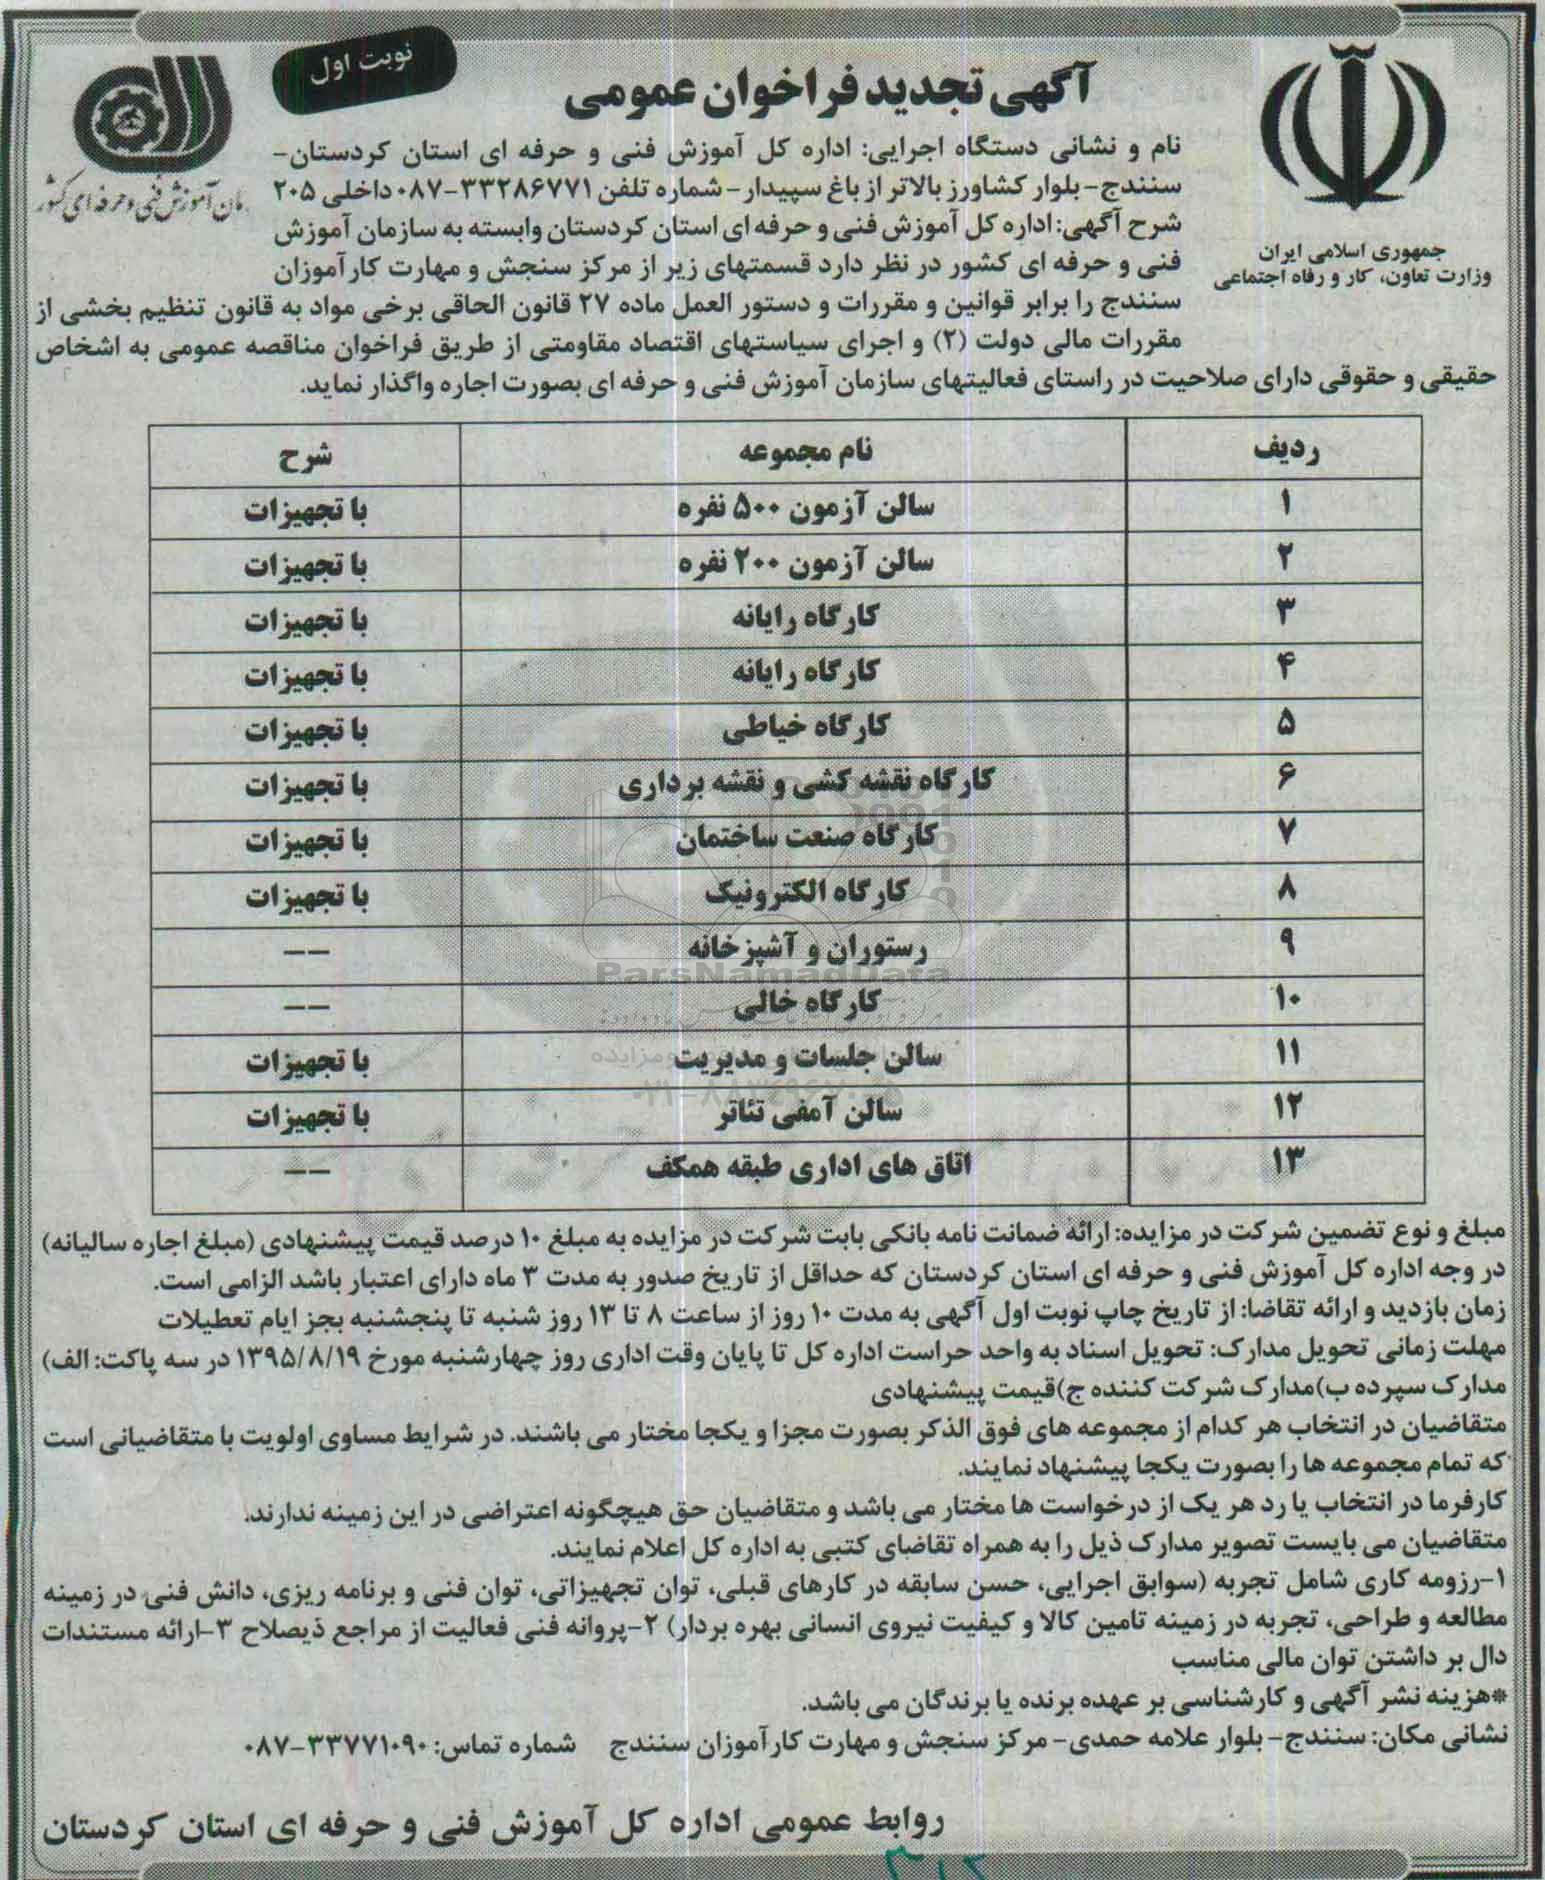 نوبت اول
آگهی تجدید فراخوان عمومی
جمهوری اسلامی ایران
وزارت تعاون، کار و رفاه اجتماعی
مان آموزش فنی و حرفه ای کشور
نام و نشانی دستگاه اجرایی: اداره کل آموزش فنی و حرفه ای استان کردستان-
سنندج- بلوار کشاورز بالاتر از باغ سپیدار- شماره تلفن ۳۳۲۸۶۷۷۱-۰۸۷ داخلی ۲۰۵
شرح آگهی: اداره کل آموزش فنی و حرفه ای استان کردستان وابسته به سازمان آموزش
فنی و حرفه ای کشور در نظر دارد قسمتهای زیر از مرکز سنجش و مهارت کارآموزان
سنندج را برابر قوانین و مقررات و دستور العمل ماده ۲۷ قانون الحاقی برخی مواد به قانون تنظیم بخشی از
مقررات مالی دولت (۲) و اجرای سیاستهای اقتصاد مقاومتی از طریق فراخوان مناقصه عمومی به اشخاص
حقیقی و حقوقی دارای صلاحیت در راستای فعالیتهای سازمان آموزش فنی و حرفه ای بصورت اجاره واگذار نماید.
ردیف نام مجموعه شرح
۱ سالن آزمون ۵۰۰ نفره با تجهیزات
۲ سالن آزمون ۲۰۰ نفره با تجهیزات
۳ کارگاه رایانه با تجهیزات
۴ کارگاه رایانه با تجهیزات
۵ کارگاه خیاطی با تجهیزات
۶ کارگاه نقشه کشی و نقشه برداری با تجهیزات
۷ کارگاه صنعت ساختمان با تجهیزات
۸ کارگاه الکترونیک با تجهیزات
۹ رستوران و آشپزخانه --
ParsNamadData
۱۰ کارگاه خالی --
۱۱ سالن جلسات و مدیریت با تجهیزات
۱۲ سالن آمفی تئاتر با تجهیزات
۱۳ اتاق های اداری طبقه همکف --
مبلغ و نوع تضمین شرکت در مزایده: ارائه ضمانت نامه بانکی بابت شرکت در مزایده به مبلغ ۱۰ درصد قیمت پیشنهادی (مبلغ اجاره سالیانه)
در وجه اداره کل آموزش فنی و حرفه ای استان کردستان که حداقل از تاریخ صدور به مدت ۳ ماه دارای اعتبار باشد الزامی است.
زمان بازدید و ارائه تقاضا: از تاریخ چاپ نوبت اول آگهی به مدت ۱۰ روز از ساعت ۸ تا ۱۳ روز شنبه تا پنجشنبه بجز ایام تعطیلات
مهلت زمانی تحویل مدارک: تحویل اسناد به واحد حراست اداره کل تا پایان وقت اداری روز چهارشنبه مورخ ۱۳۹۵/۸/۱۹ در سه پاکت: الف)
مدارک سپرده ب)مدارک شرکت کننده ج)قیمت پیشنهادی
متقاضیان در انتخاب هر کدام از مجموعه های فوق الذکر بصورت مجزا و یکجا مختار می باشند. در شرایط مساوی اولویت با متقاضیانی است
که تمام مجموعه ها را بصورت یکجا پیشنهاد نمایند.
کارفرما در انتخاب یا رد هر یک از درخواست ها مختار می باشد و متقاضیان حق هیچگونه اعتراضی در این زمینه ندارند.
متقاضیان می بایست تصویر مدارک ذیل را به همراه تقاضای کتبی به اداره کل اعلام نمایند.
۱-رزومه کاری شامل تجربه (سوابق اجرایی، حسن سابقه در کارهای قبلی، توان تجهیزاتی، توان فنی و برنامه ریزی، دانش فنی در زمینه
مطالعه و طراحی، تجربه در زمینه تامین کالا و کیفیت نیروی انسانی بهره بردار) ۲-پروانه فنی فعالیت از مراجع ذیصلاح ۳-ارائه مستندات
دال بر داشتن توان مالی مناسب
*هزینه نشر آگهی و کارشناسی بر عهده برنده یا برندگان می باشد.
نشانی مکان: سنندج- بلوار علامه حمدی- مرکز سنجش و مهارت کارآموزان سنندج شماره تماس: ۳۳۷۷۱۰۹۰-۰۸۷
روابط عمومی اداره کل آموزش فنی و حرفه ای استان کردستان